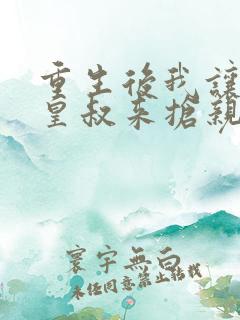 重生後我讓
皇叔來搶親
寰宇無白
未经同意禁止转载